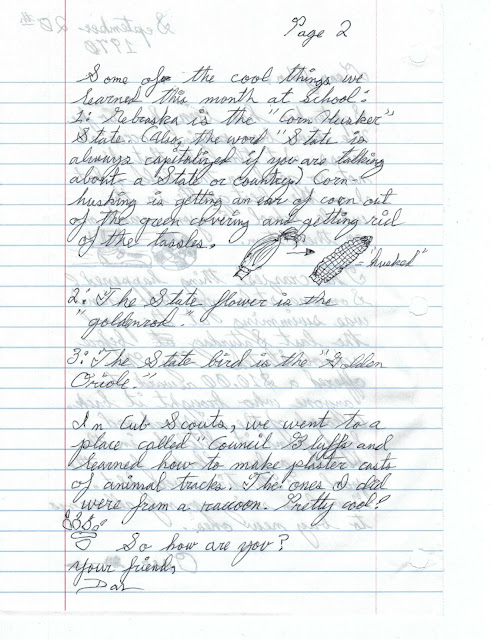 Page 2
Some of the cool things we
learned this month at School:
1: Nebraska is the "Corn Husker"
State. (Also, the word "State is
always capitalized if you are talking
about a State or country.) Corn
husking is getting an ear of corn out
of the green covering and getting rid
of the tassles.
= "husked"
2: The State flower is the
"goldenrod."
3: The State bird is the "Golden
Oriole."
In Cub Scouts, we went to a
place called "Council Bluffs and
learned how to make plaster casts
of animal tracks. The ones I did
were from a raccoon. Pretty cool?
So how are you?
Your friend,